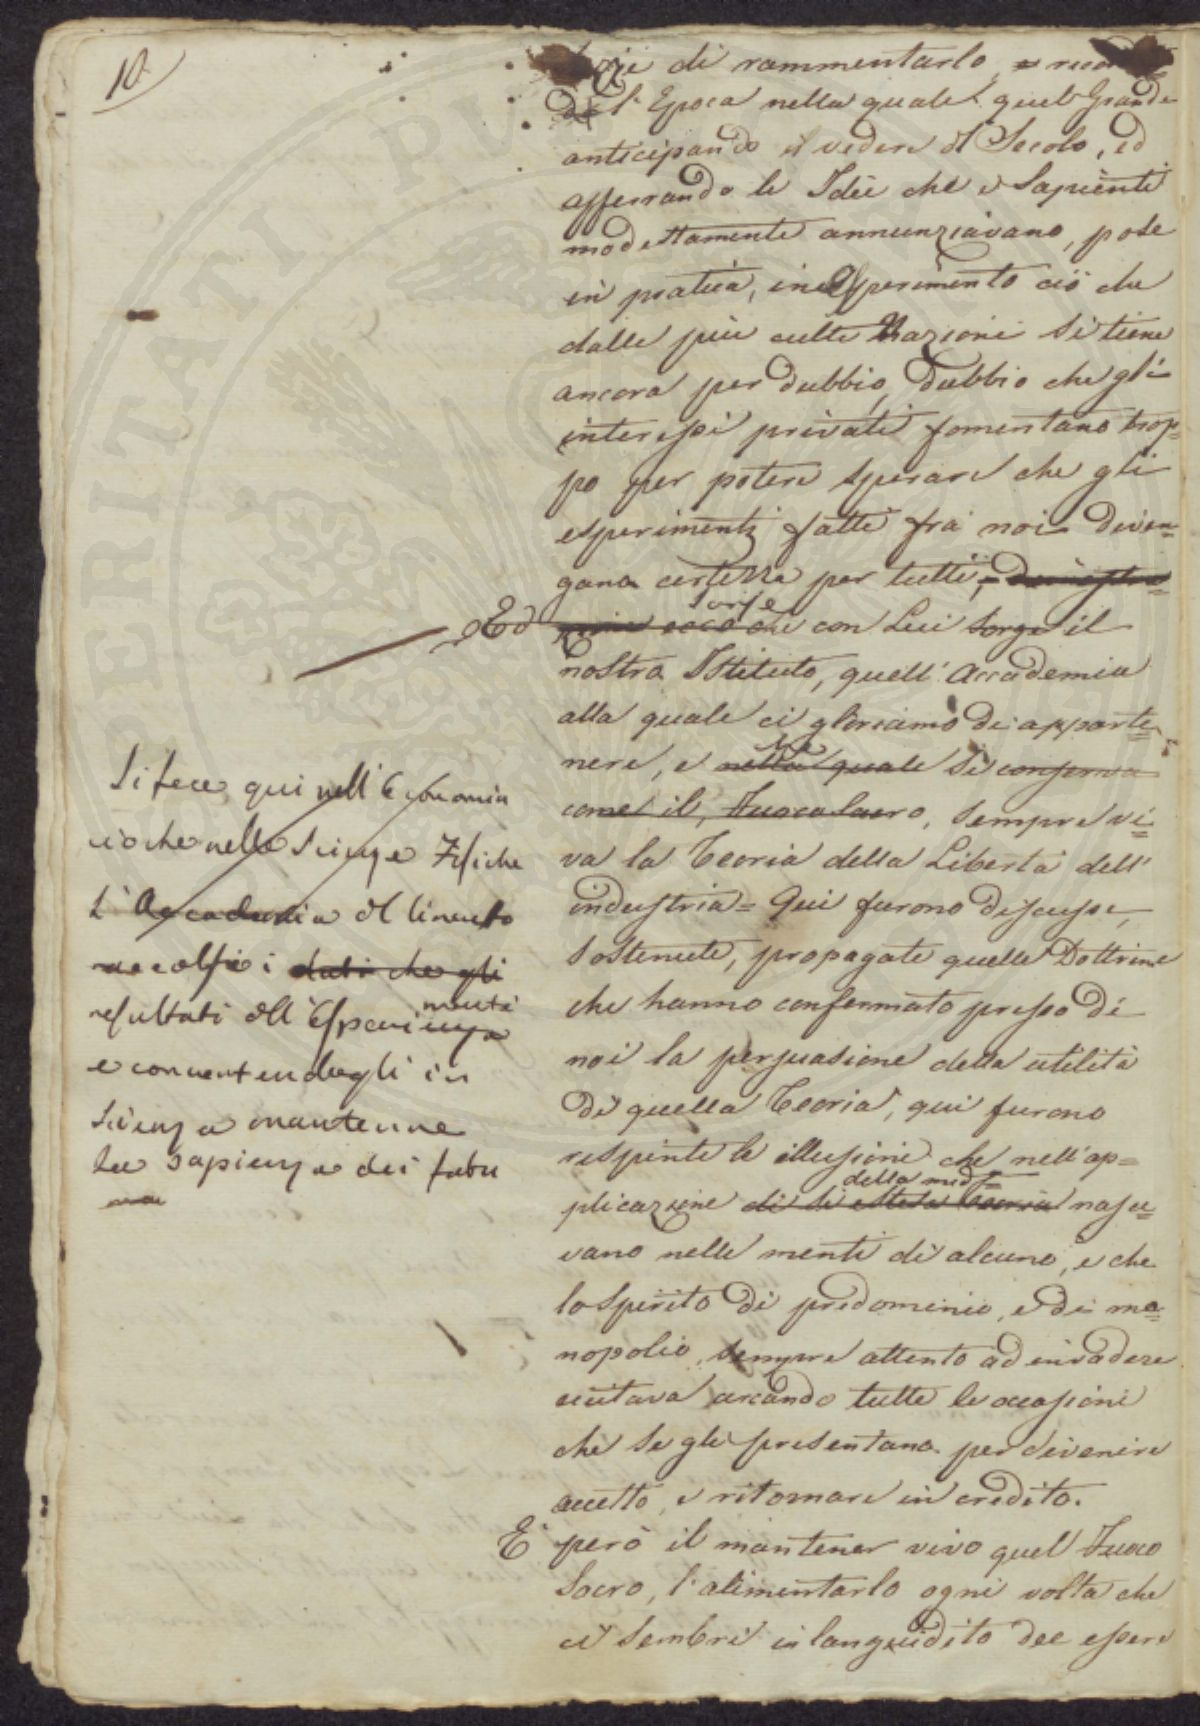 10.
di rammentarlo,
l'Epoca nella quale quel Grande
anticipando il vedere del Secolo, ed
afferrando le Idee che i Sapienti
modestamente annunziavano, pose
in pratica, in Esperimento ciò che
dalle più culte Nazioni si tiene
ancora per dubbio, dubbio che gli
interessi privati fomentano trop=
po per potere sperare che gli
esperimenti fatti fra noi diven=
gano certezza per tutti,
Ed ecco che con Lui Sorge sorse il
nostro Istituto, quell'Accademia
alla quale ci gloriamo di apparte=
nere, e nella quale si conserva
come il Fuoco Sacro, sempre vi=
va la Teoria della Libertà dell'
industria = Qui furono discusse,
sostenute, propagate quelle Dottrine
che hanno confermato presso di
noi la persuasione della utilità
di quella Teoria, qui furono
respinte le illusioni che nell'ap=
plicazione della mede= nasce=
vano nelle menti di alcuno, e che
lo Spirito di predominio, e di mo=
nopolio, sempre attento ad invadere
eccitava cercando tutte le occasioni
che se gli presentano per divenire
accetto, e ritornare in credito.
E però il mantener vivo quel Fuoco
Sacro, l'alimentarlo ogni volta che
ci sembri illanguidito dee essere
Si fece qui nell'Economia
ciò che nelle Scienze Fisiche
L'Accademia del Cimento
raccolse i dati che gli
resultati dell'Esperimenti
e convertendogli in
Scienza mantenne
la sapienza dei